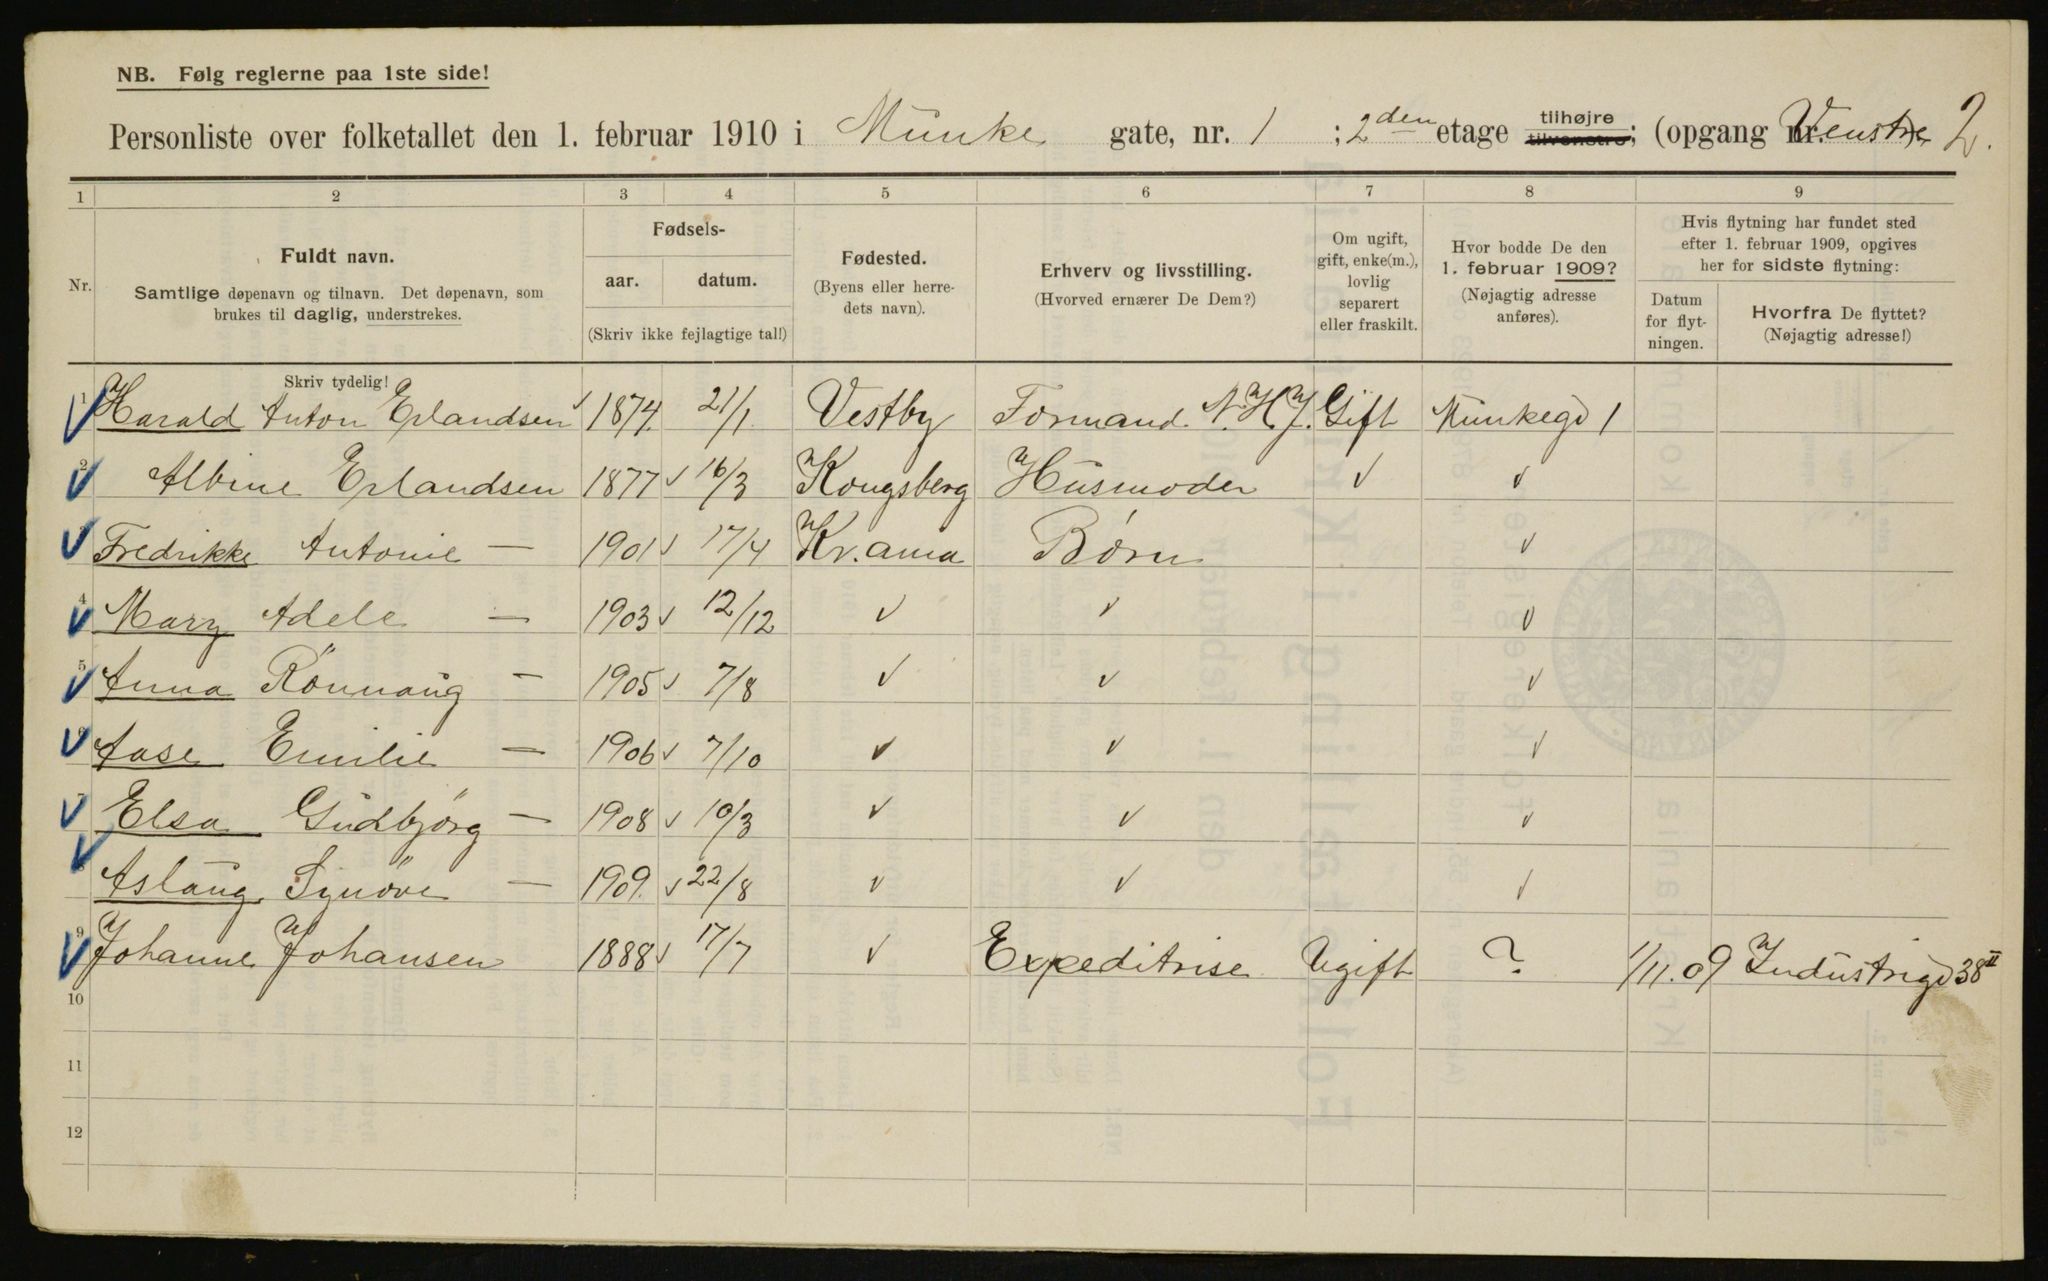 NB. Følg reglerne paa 1ste side!
Personliste over folketallet den 1. februar 1910 i Munke gate, nr. 1 ; 2den etage tilhøjre tilvenstre; (opgang nr. Venstre 2.
1 2 3 4 5 6 7 8 9
Nr.
Fuldt navn.
Samtlige døpenavn og tilnavn. Det døpenavn, som
brukes til daglig, understrekes.
Skriv tydelig!
Fødsels-
aar. datum.
(Skriv ikke fejlagtige tal!)
Fødested.
(Byens eller herre-
dets navn).
Erhverv og livsstilling.
(Hvorved ernærer De Dem?)
Om ugift,
gift, enke(m.),
lovlig
separert
eller fraskilt.
Hvor bodde De den
1. februar 1909?
(Nøjagtig adresse
anføres).
Hvis flytning har fundet sted
efter 1. februar 1909, opgives
her for sidste flytning:
Datum
for flyt-
ningen.
Hvorfra De flyttet?
(Nøjagtig adresse!)
1 Harald Anton Erlandsen 1874. 21/1 Vestby Formand. N.H.J. Gift Munkegd 1
2 Albine Erlandsen 1877 16/3 Kongsberg Husmoder ✓ ✓
3 Fredrikke Antonie — 1901 17/4 Kr.ania Børn ✓
4 Mary Adele — 1903 12/12 ✓ ✓ ✓
5 Anna Rönnaug — 1905 7/8 ✓ ✓ ✓
6 Aase Emilie — 1906 7/10 ✓ ✓ ✓
7 Elsa Gudbjörg — 1908 10/3 ✓ ✓ ✓
8 Aslaug Synöve — 1909. 22/8 ✓ ✓ ✓
9 Johanne Johansen 1888 17/7 ✓ Expeditrise Ugift ? 1/11.09 Industrigd 38 II
10
11
12